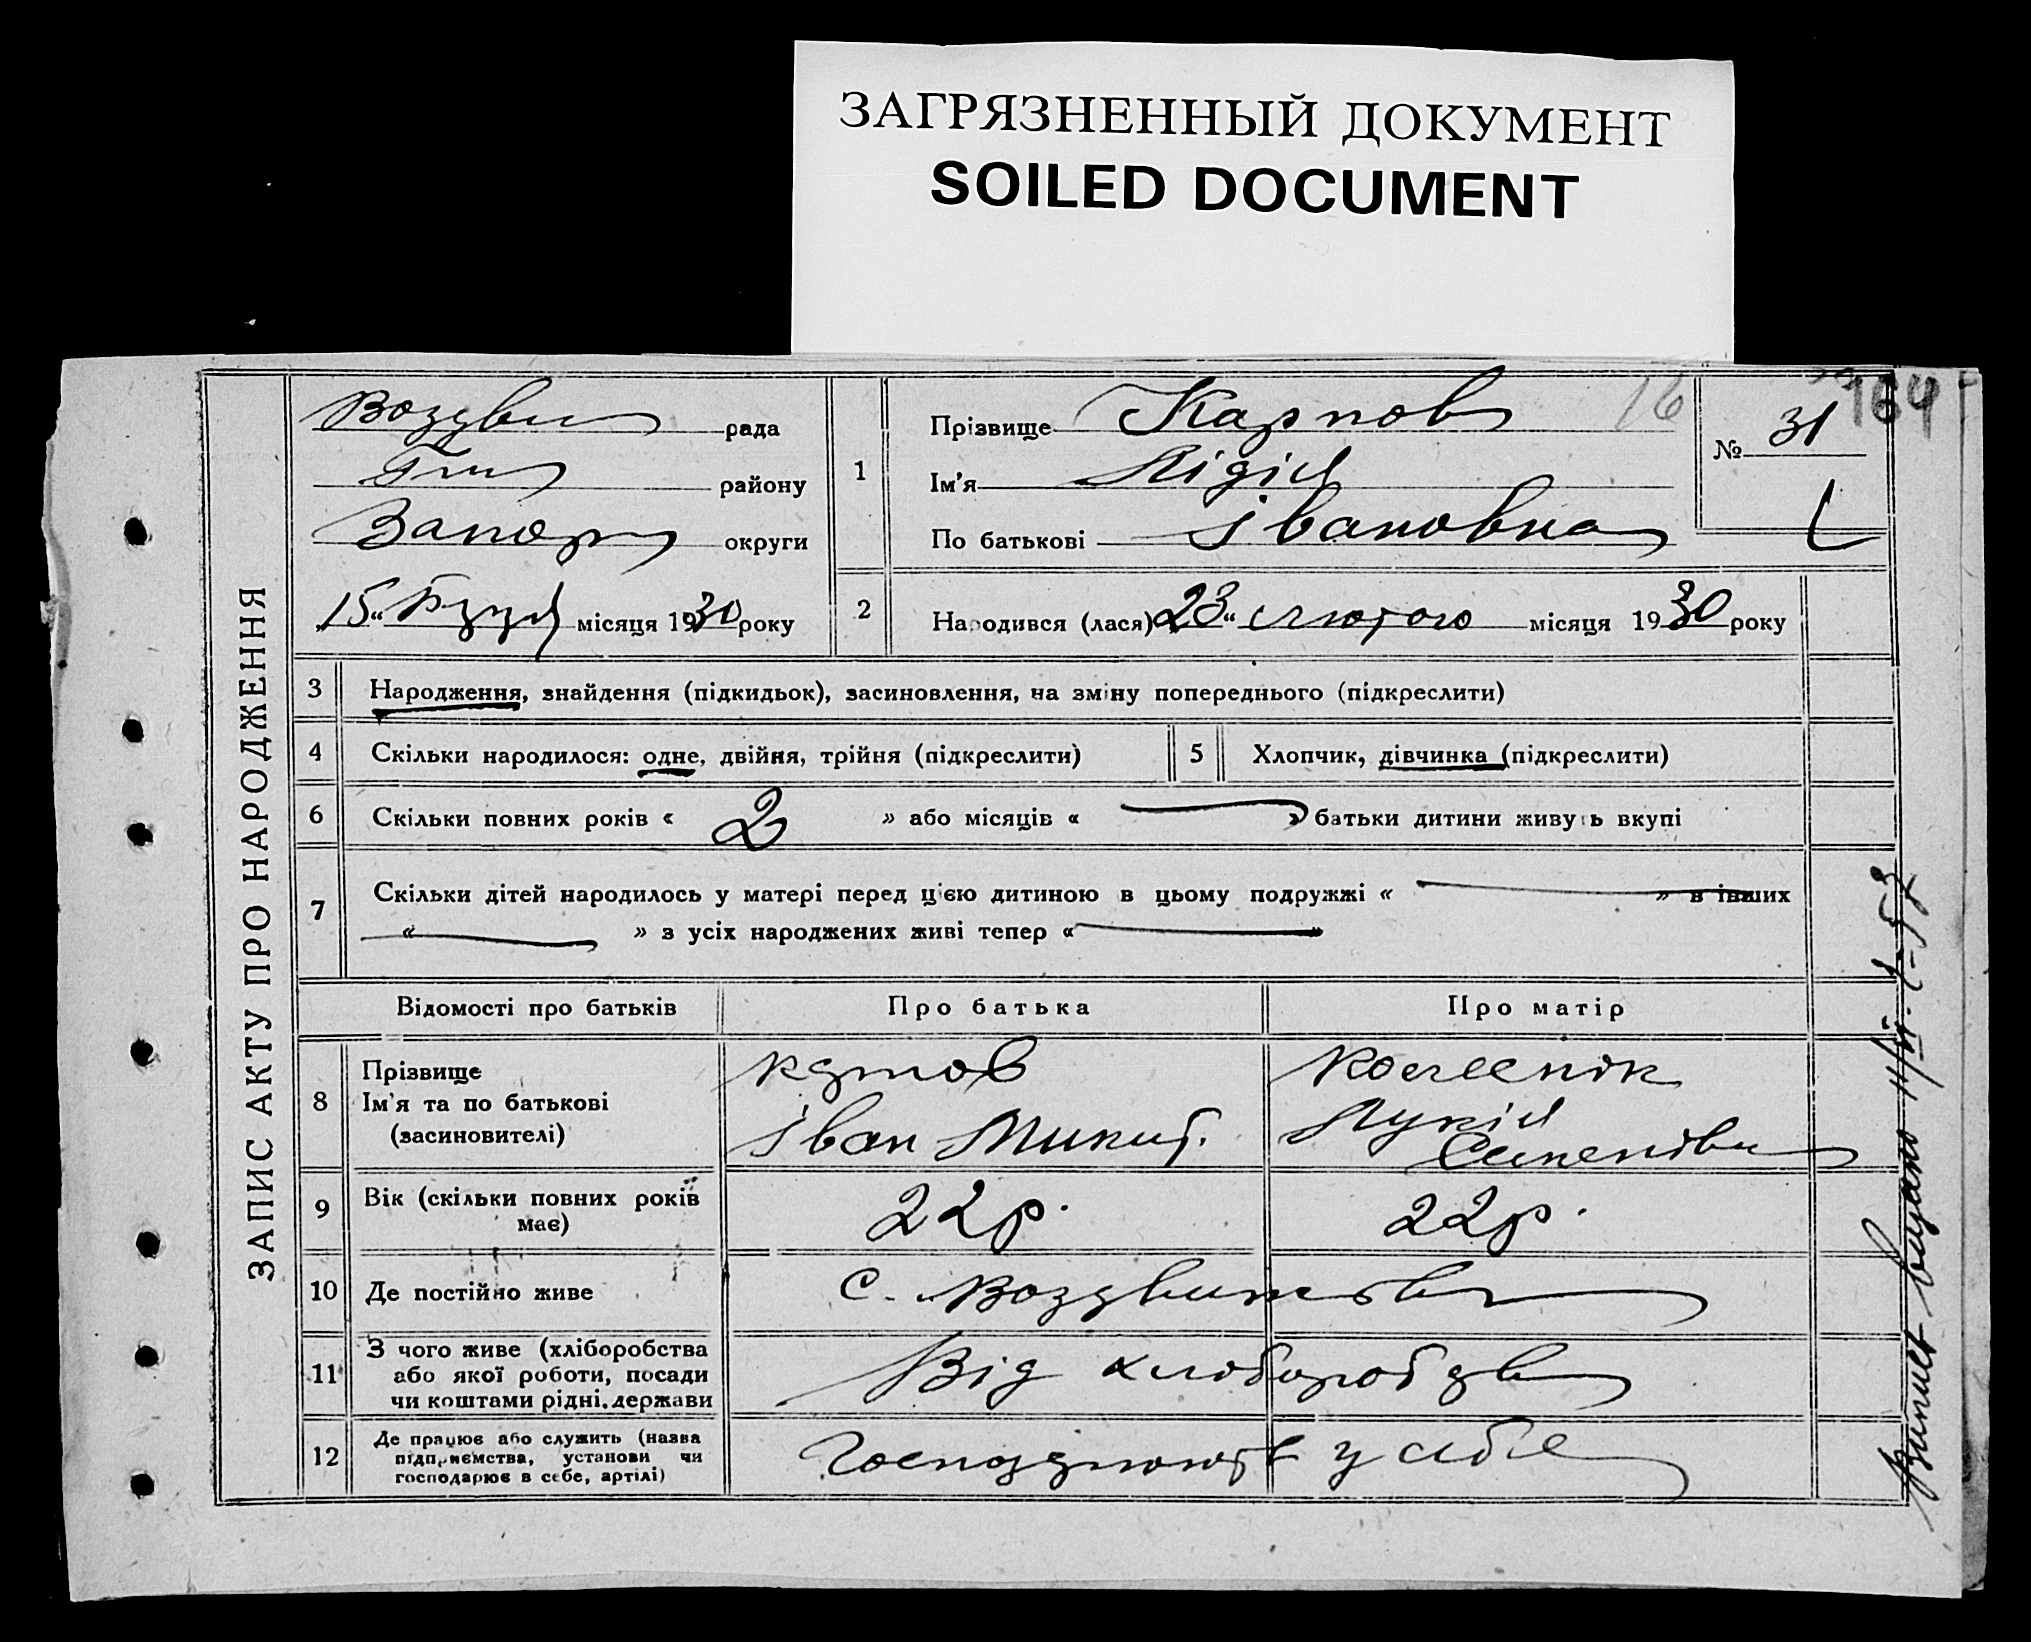 ЗАГРЯЗНЕННЫЙ ДОКУМЕНТ
SOILED DOCUMENT
164
16
ЗАПИС АКТУ ПРО НАРОДЖЕННЯ
Воздви рада
району
Запор округи
„15“ місяця 1930 року
1
Прізвище Карпов
Ім'я Лідія
По батькові Івановна
№ 31
2
Народився (лася) 23“ лютого місяця 1930 року
3 Народження, знайдення (підкидьок), засиновлення, на зміну попереднього (підкреслити)
4 Скільки народилося: одне, двійня, трійня (підкреслити)
5 Хлопчик, дівчинка (підкреслити)
6 Скільки повних років « 2 » або місяців « — » батьки дитини живуть вкупі
7 Скільки дітей народилось у матері перед цією дитиною в цьому подружжі « — » в інших
« — » з усіх народжених живі тепер « — »
Відомості про батьків Про батька Про матір
8 Прізвище
Ім'я та по батькові
(засиновителі)
Карпов
Іван Микит.
Лукія
Семенівн
9 Вік (скільки повних років має) 22 р. 22 р.
10 Де постійно живе с. Воздвижівк
11 З чого живе (хліборобства або якої роботи, посади чи коштами рідні, держави Від хліборобств
12 Де працює або служить (назва підприємства, установи чи господарює в себе, артілі) Господарюють у себе
Випис видано